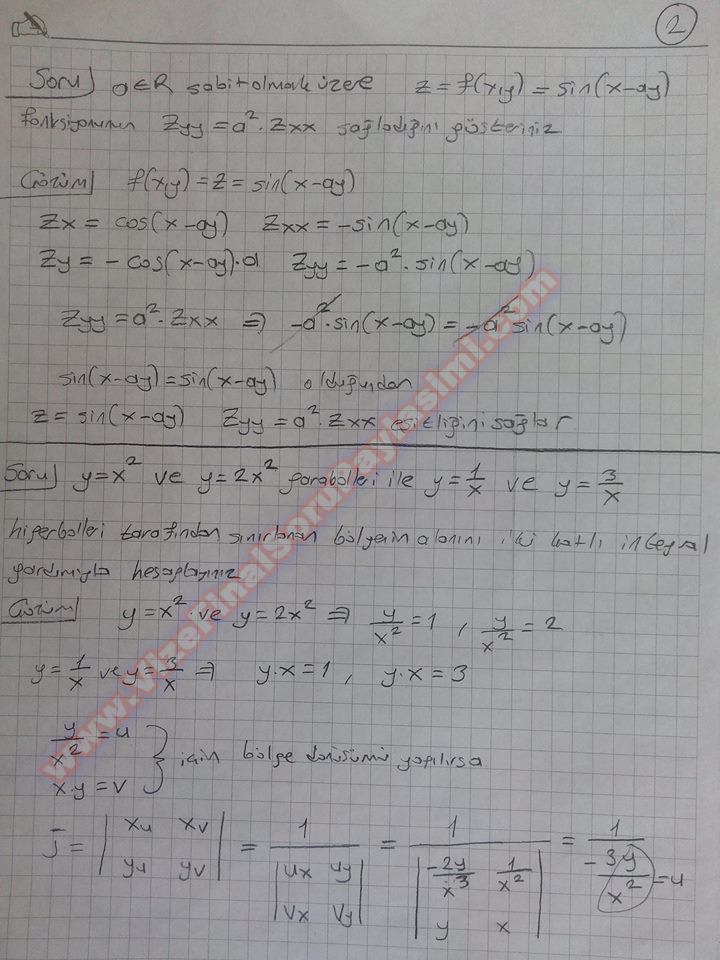 2
Soru) a∈R sabit olmak üzere z = f(x,y) = sin(x-ay)
fonksiyonunun Zyy = a².Zxx sağladığını gösteriniz
Çözüm) f(x,y) = z = sin(x-ay)
Zx = cos(x-ay) Zxx = -sin(x-ay)
Zy = -cos(x-ay).a Zyy = -a².sin(x-ay)
Zyy = a².Zxx ⇒ -a².sin(x-ay) = -a² sin(x-ay)
sin(x-ay) = sin(x-ay) olduğundan
z = sin(x-ay) Zyy = a².Zxx eşitliğini sağlar
Soru) y=x² ve y=2x² parabolleri ile y=1/x ve y=3/x
hiperbolleri tarafından sınırlanan bölgenin alanını iki katlı integral
yardımıyla hesaplayınız
Çözüm) y=x² ve y=2x² ⇒ y/x² = 1, y/x² = 2
y=1/x ve y=3/x ⇒ y.x=1, y.x=3
y/x² = u
x.y = v } için bölge dönüşümü yapılırsa
J = |xu xv; yu yv| = 1/|ux uy; vx vy| = 1/|-2y/x³ 1/x²; y x| = 1/(-3y/x²) = u
www.VizeFinalSoruPaylasimi.com